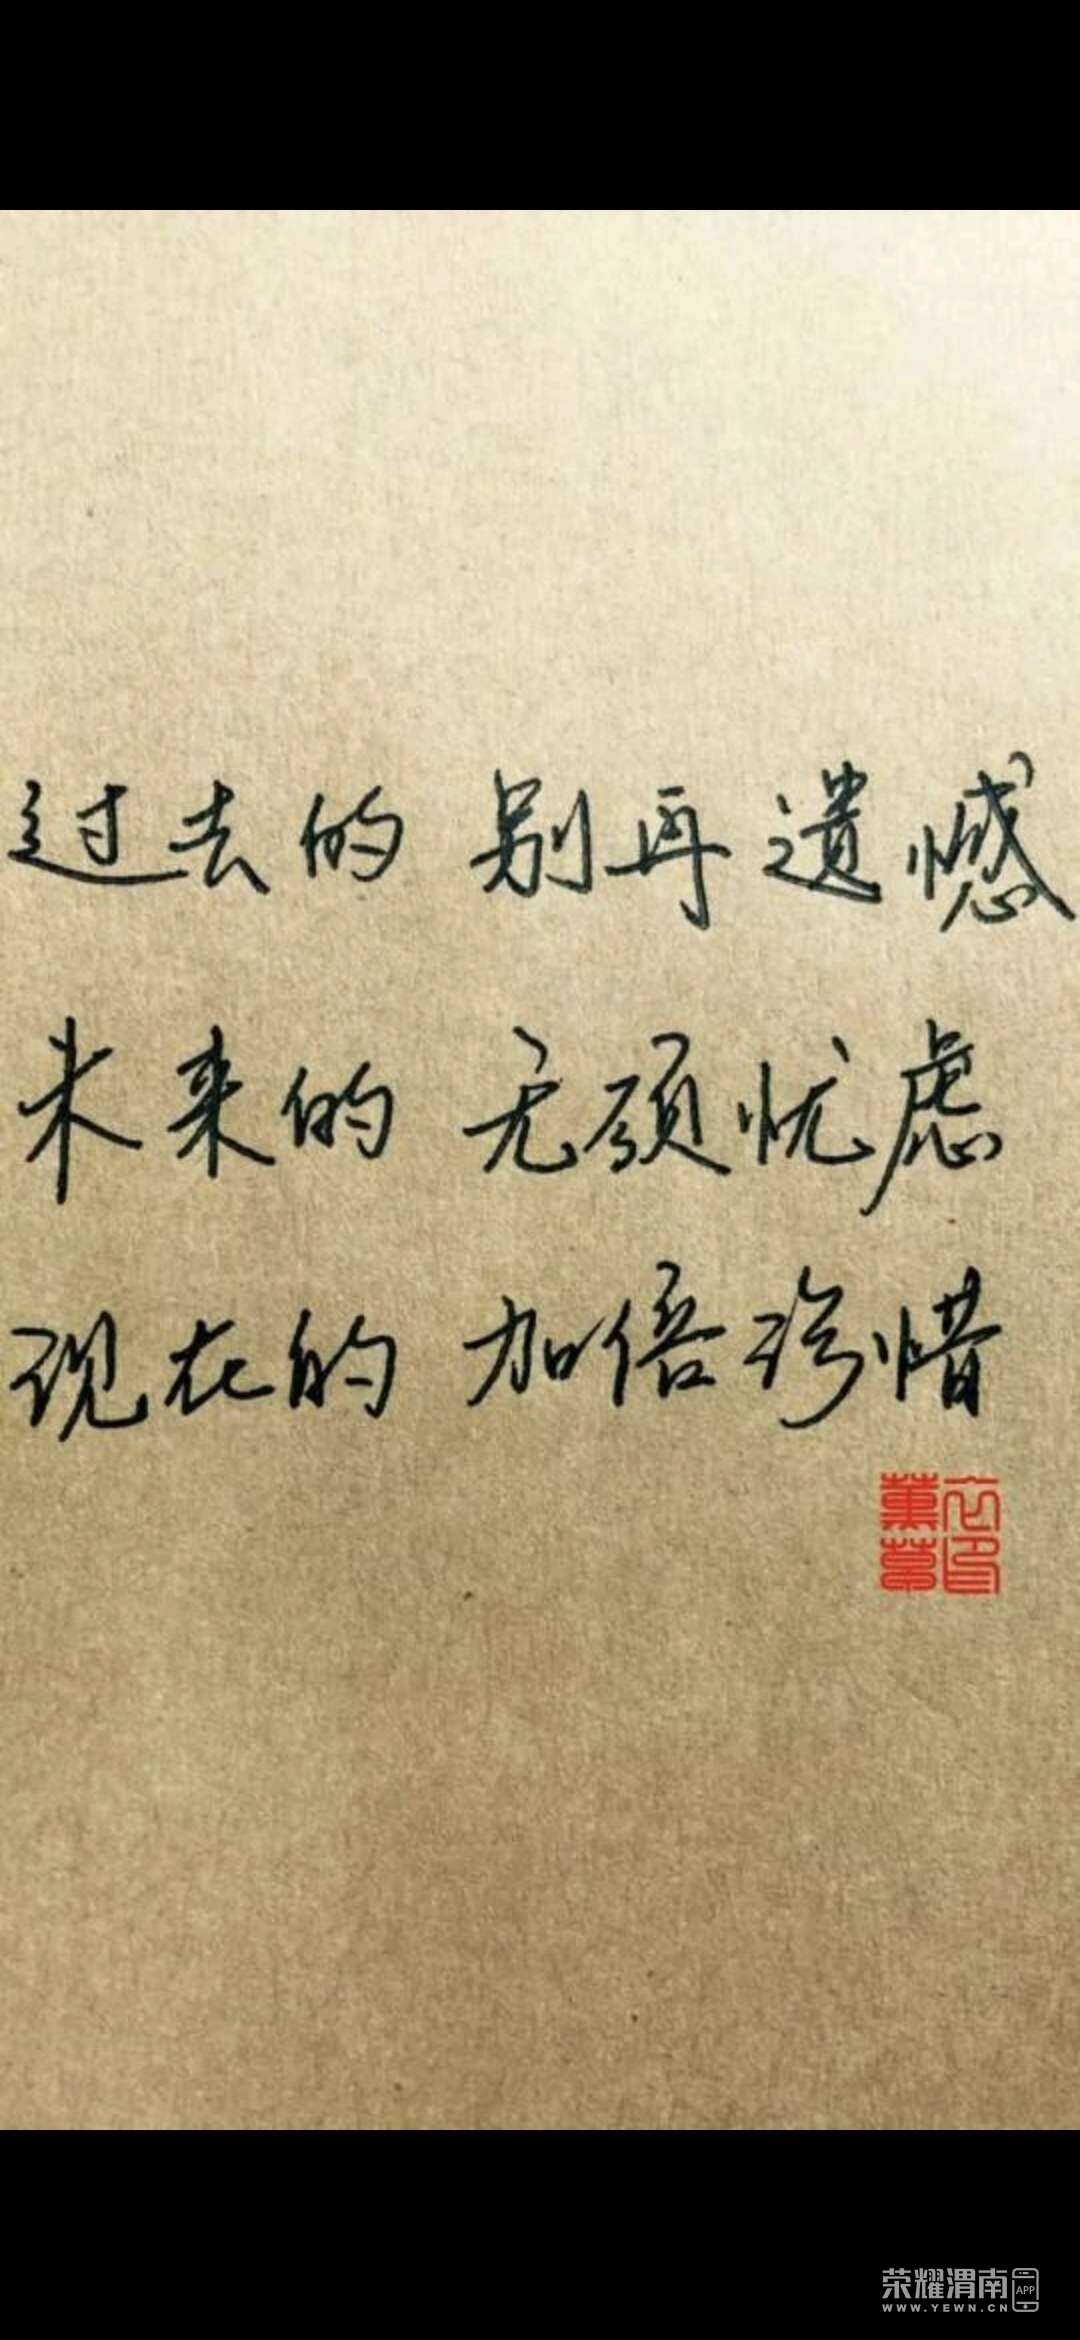 过去的 别再遗憾
未来的 无须忧虑
现在的 加倍珍惜
荣耀渭南
APP
WWW.YEWN.CN